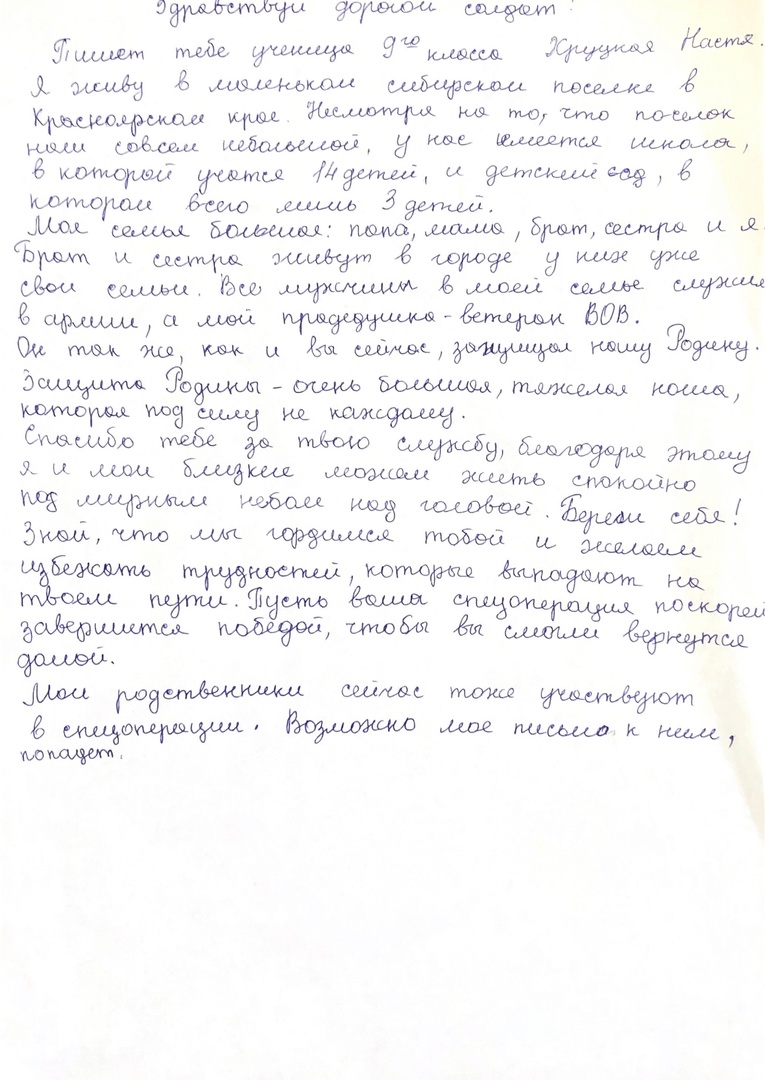 Здравствуй дорогой солдат!
Пишет тебе ученица 9го класса Хруцкая Настя.
Я живу в маленьком сибирском поселке в
Красноярском крае. Несмотря на то, что поселок
наш совсем небольшой, у нас имеется школа,
в которой учатся 14 детей, и детский сад, в
котором всего лишь 3 детей.
Моя семья большая: папа, мама, брат, сестра и я.
Брат и сестра живут в городе у них уже
свои семьи. Все мужчины в моей семье служили
в армии, а мой прадедушка - ветеран ВОВ.
Он так же, как и вы сейчас, защищал нашу Родину.
Защита Родины - очень большая, тяжелая ноша,
которая под силу не каждому.
Спасибо тебе за твою службу, благодаря этому
я и мои близкие можем жить спокойно
под мирным небом над головой. Береги себя!
Знай, что мы гордимся тобой и желаем
избежать трудностей, которые выпадают на
твоем пути. Пусть ваша спецоперация поскорей
завершится победой, чтобы вы смогли вернутся
домой.
Мои родственники сейчас тоже участвуют
в спецоперации. Возможно мое письмо к ним,
попадет.